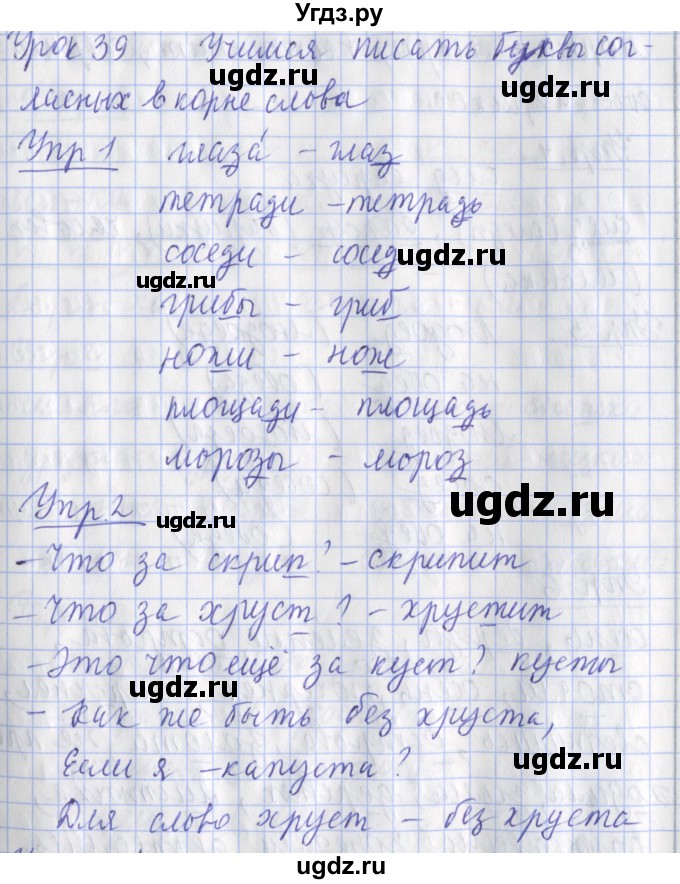 Угдз.ру
Урок 39 Учимся писать буквы сог-
ласных в корне слова
Упр 1 глаза́ - глаз
тетради - тетрадь
соседи - сосед
грибы - гриб
ножи - нож
площади - площадь
морозы - мороз
Упр. 2
- Что за скрип? - скрипит
- Что за хруст? - хрустит
- Это что ещё за куст? кусты
- Как же быть без хруста,
Если я - капуста?
Для слово хруст - без хруста
ugdz.ru
ugdz.ru
ugdz.ru
ugdz.ru
ugdz.ru
ugdz.ru
ugdz.ru
ugdz.ru
ugdz.ru
ugdz.ru
ugdz.ru
ugdz.ru